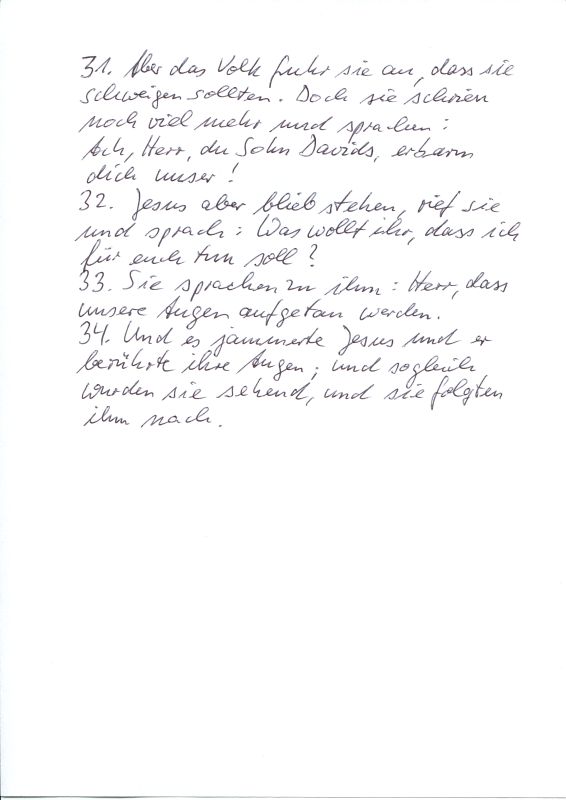 31. Aber das Volk fuhr sie an, dass sie
schweigen sollten. Doch sie schrien
noch viel mehr und sprachen:
Ach, Herr, du Sohn Davids, erbarm
dich unser!
32. Jesus aber blieb stehen, rief sie
und sprach: Was wollt ihr, dass ich
für euch tun soll?
33. Sie sprachen zu ihm: Herr, dass
unsere Augen aufgetan werden.
34. Und es jammerte Jesus und er
berührte ihre Augen; und sogleich
wurden sie sehend, und sie folgten
ihm nach.